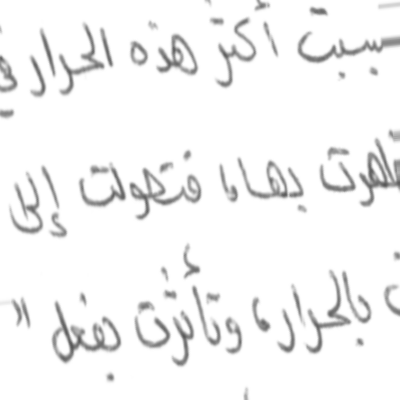 سببت أكثر هذه الحرار في
ظهرت بها، فتحولت إلى
بالحرار، وتأثرت بفعل "